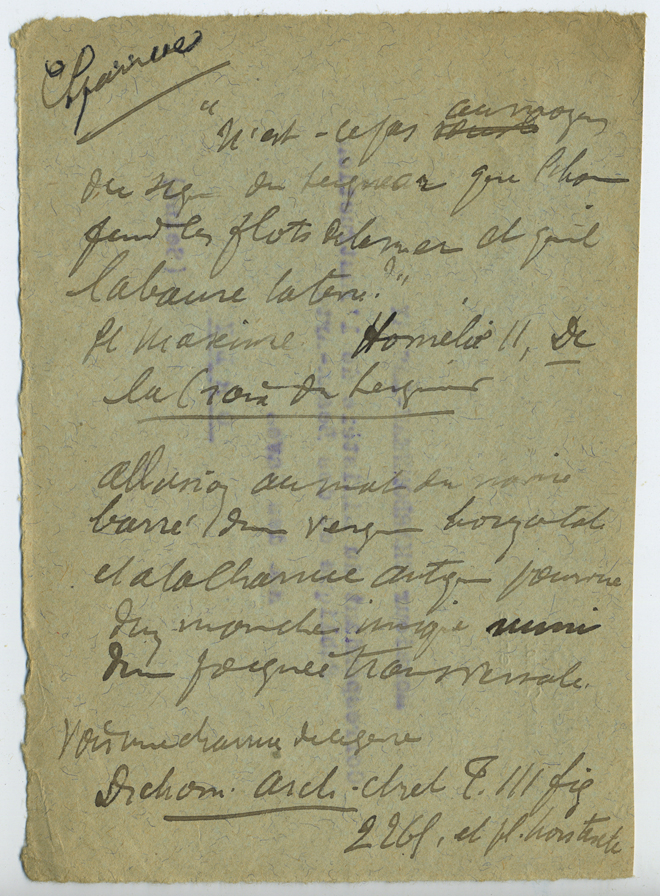 Charrue
"N'est-ce pas au moyen
du sign du Seigneur que l'hom
fend les flots de la mer et qu'il
laboure la terre."
St Maxime Homélie II, De
la Croix du Seigneur
allusion au mat du navire
barré d'un vergue horizontale
et a la charrue antique pourvue
d'un manche unique muni
d'un poignée transversale.
Voir une charrue de ce genre
Diction. Arch. chret T. III fig
2265, et pl. hors texte